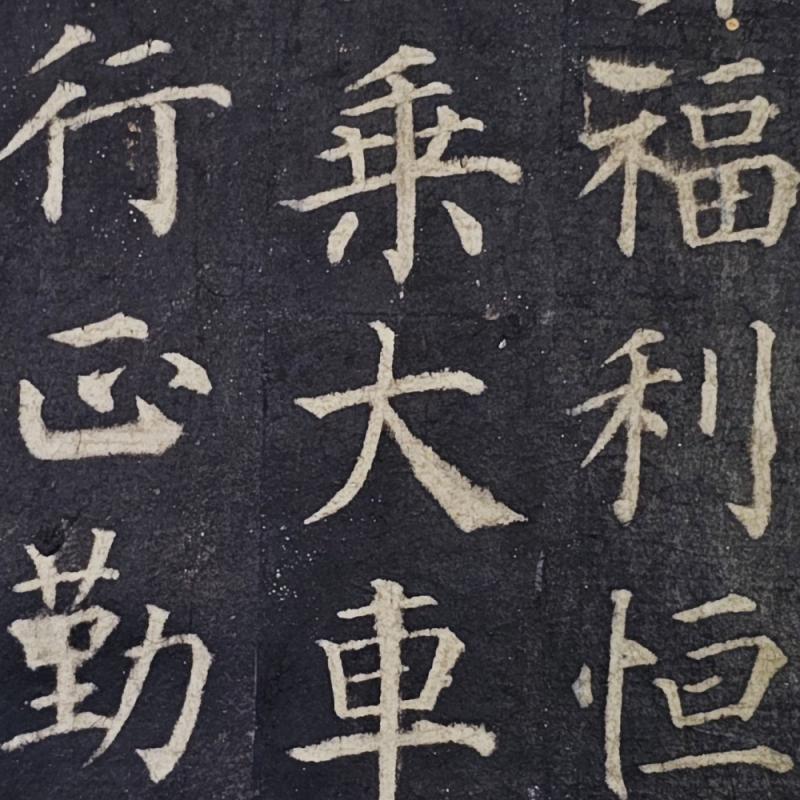 福利恒
乗大車
行正勤